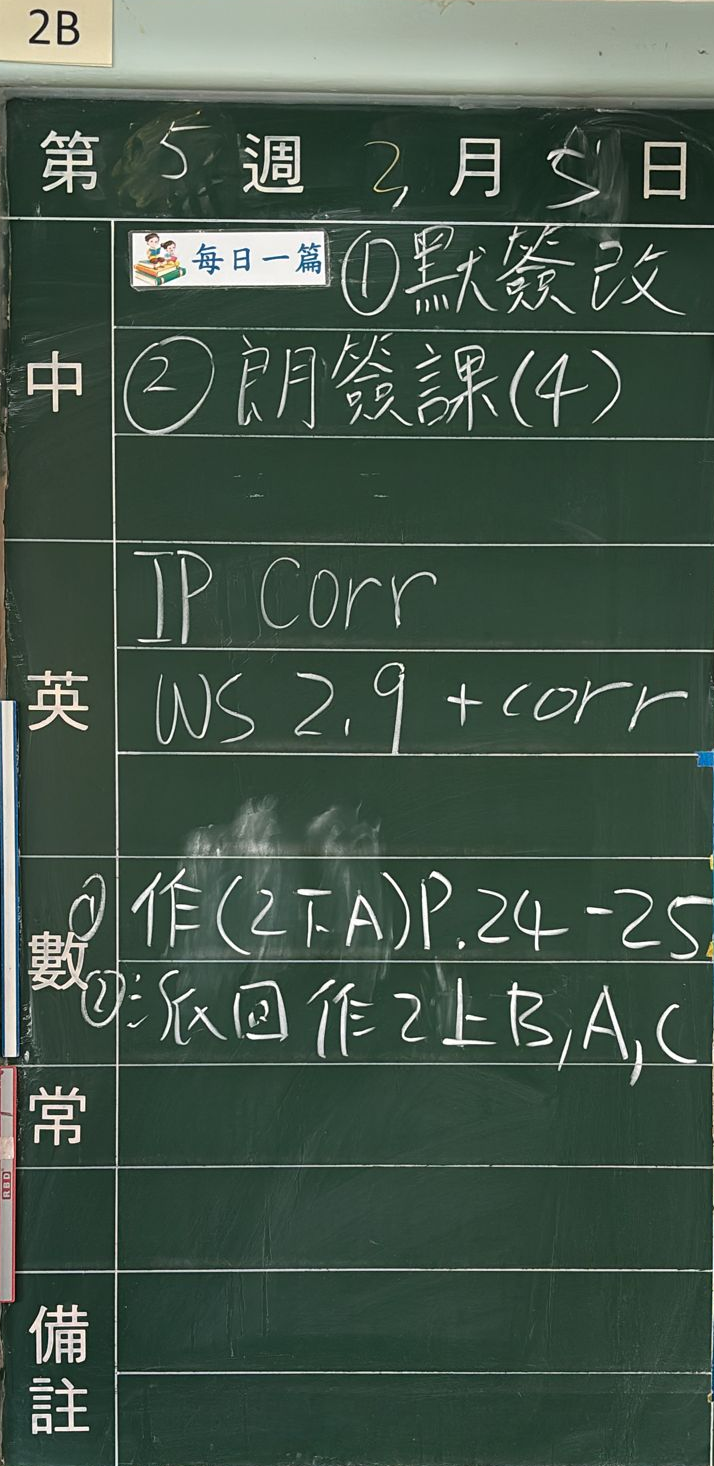 2B
第 5 週 2 月 5 日
中
每日一篇 ①默簽改
②朗簽課(4)
英
IP Corr
WS 2.9 + corr
數
① 作(2下A)P.24-25
② 派回作2上B,A,C
常
備註
RBD